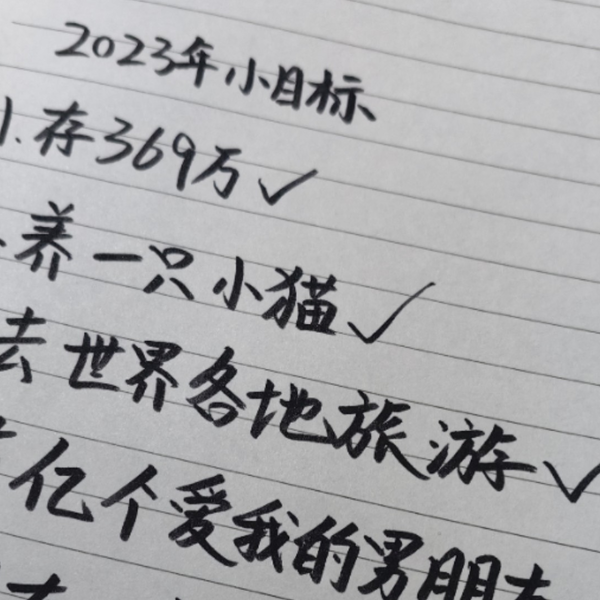 2023年小目标
1.存369万✓
养一只小猫✓
去世界各地旅游✓
亿个爱我的男朋友